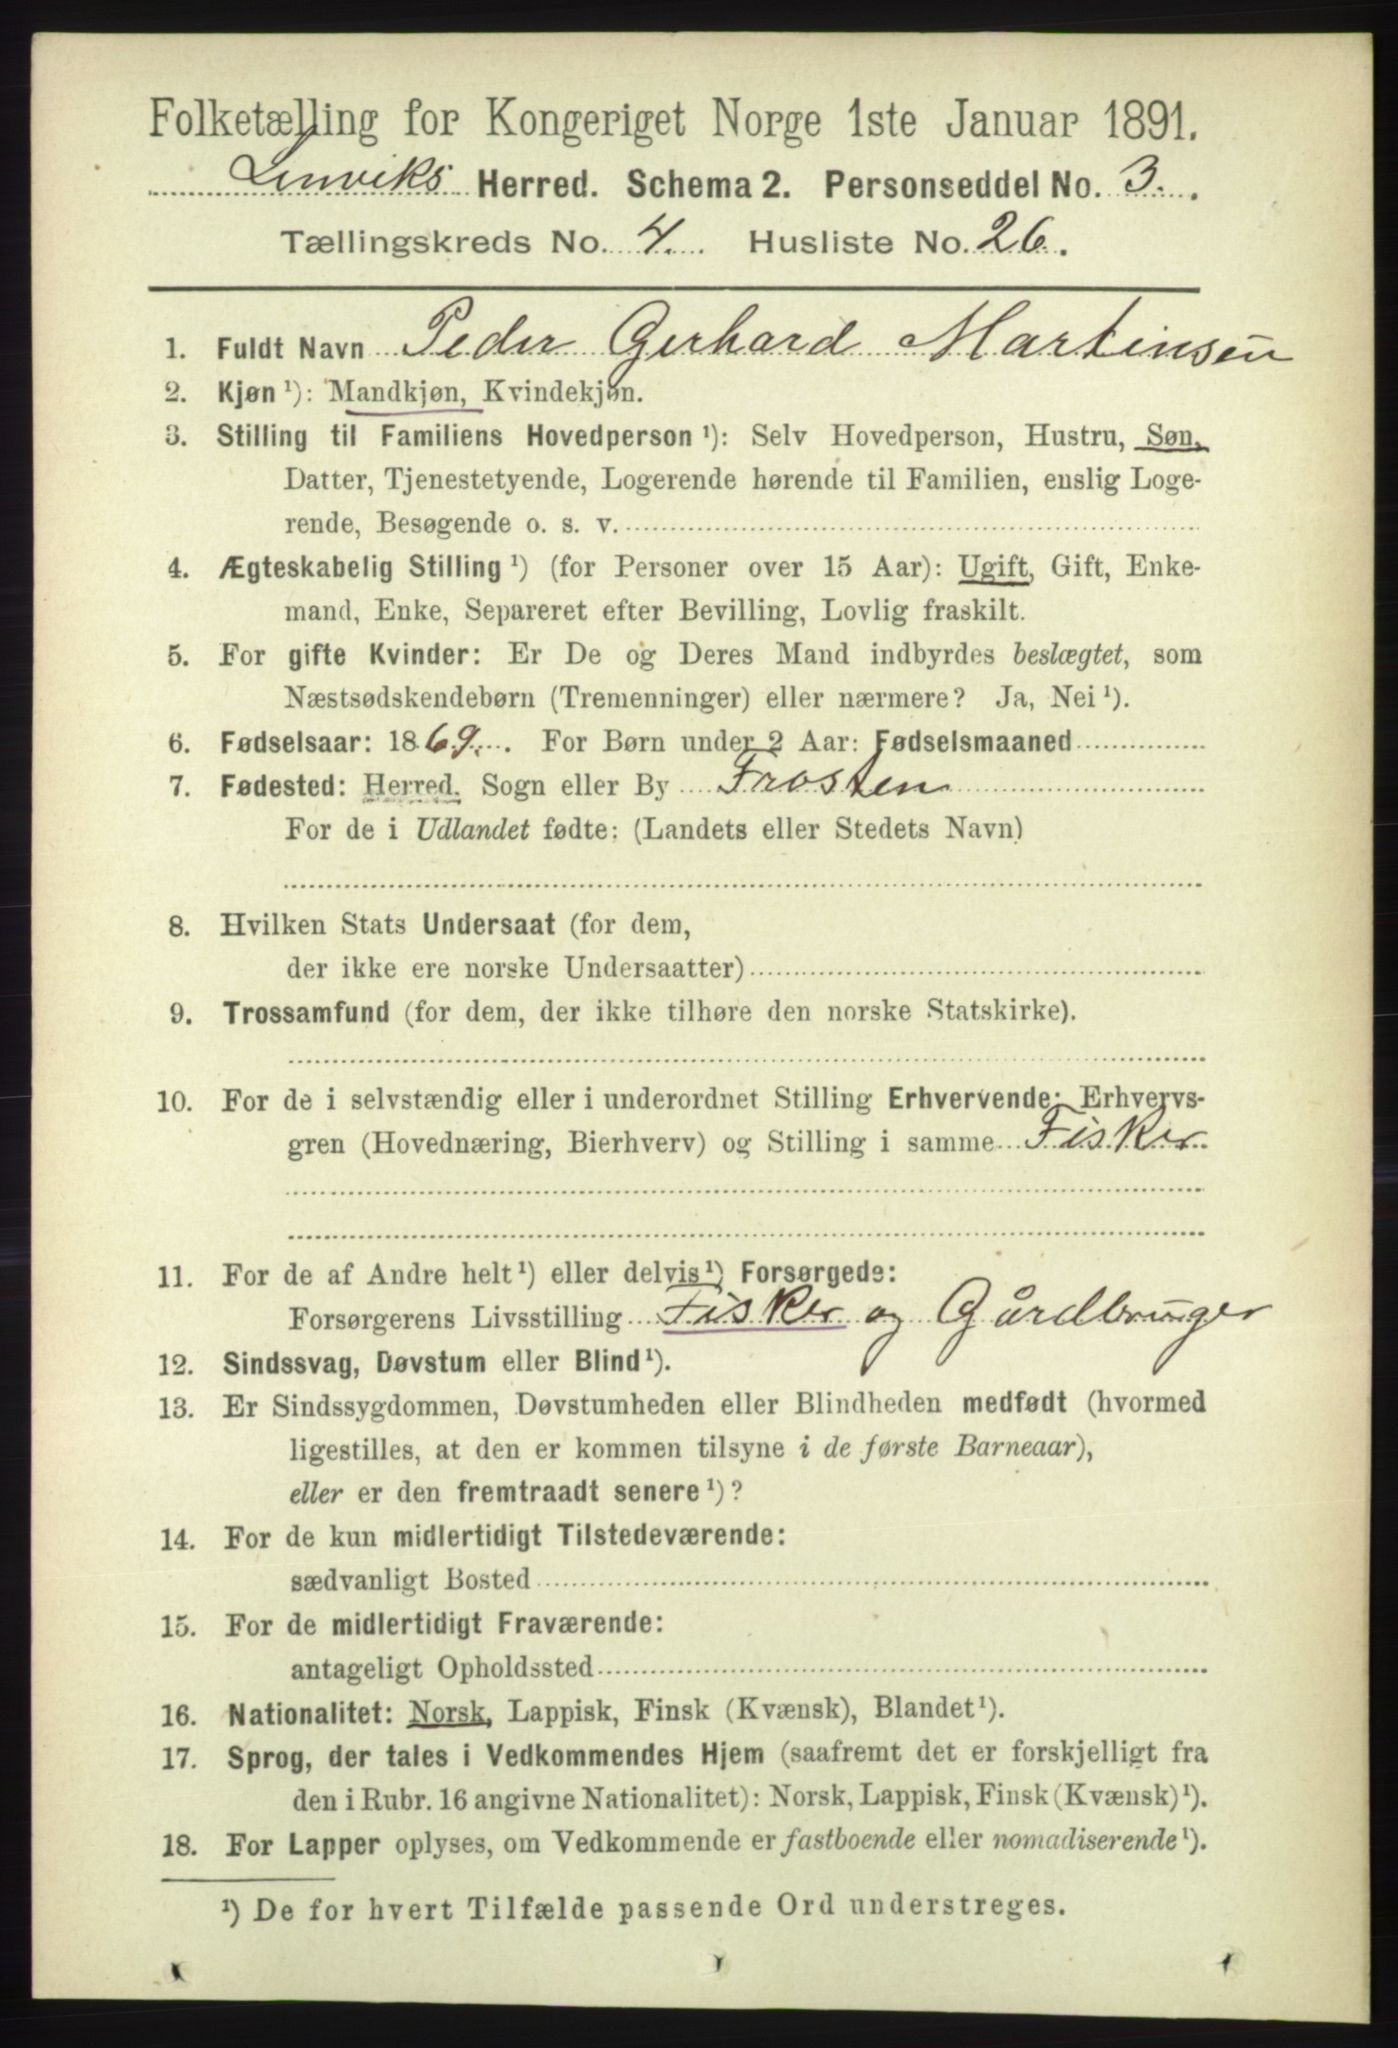 Folketælling for Kongeriget Norge 1ste Januar 1891.
Lenviks Herred. Schema 2. Personseddel No. 3.
Tællingskreds No. 4. Husliste No. 26.
1. Fuldt Navn Peder Gerhard Martinsen
2. Kjøn ¹): Mandkjøn, Kvindekjøn.
3. Stilling til Familiens Hovedperson ¹): Selv Hovedperson, Hustru, Søn,
Datter, Tjenestetyende, Logerende hørende til Familien, enslig Loge-
rende, Besøgende o. s. v.
4. Ægteskabelig Stilling ¹) (for Personer over 15 Aar): Ugift, Gift, Enke-
mand, Enke, Separeret efter Bevilling, Lovlig fraskilt.
5. For gifte Kvinder: Er De og Deres Mand indbyrdes beslægtet, som
Næstsødskendebørn (Tremenninger) eller nærmere? Ja, Nei ¹).
6. Fødselsaar: 1869. For Børn under 2 Aar: Fødselsmaaned
7. Fødested: Herred. Sogn eller By Frosten
For de i Udlandet fødte: (Landets eller Stedets Navn)
8. Hvilken Stats Undersaat (for dem,
der ikke ere norske Undersaatter)
9. Trossamfund (for dem, der ikke tilhøre den norske Statskirke).
10. For de i selvstændig eller i underordnet Stilling Erhvervende: Erhvervs-
gren (Hovednæring, Bierhverv) og Stilling i samme Fisker
11. For de af Andre helt ¹) eller delvis ¹) Forsørgede:
Forsørgerens Livsstilling Fisker og Gårdbruger
12. Sindssvag, Døvstum eller Blind ¹).
13. Er Sindssygdommen, Døvstumheden eller Blindheden medfødt (hvormed
ligestilles, at den er kommen tilsyne i de første Barneaar),
eller er den fremtraadt senere ¹)?
14. For de kun midlertidigt Tilstedeværende:
sædvanligt Bosted
15. For de midlertidigt Fraværende:
antageligt Opholdssted
16. Nationalitet: Norsk, Lappisk, Finsk (Kvænsk), Blandet ¹).
17. Sprog, der tales i Vedkommendes Hjem (saafremt det er forskjelligt fra
den i Rubr. 16 angivne Nationalitet): Norsk, Lappisk, Finsk (Kvænsk) ¹).
18. For Lapper oplyses, om Vedkommende er fastboende eller nomadiserende ¹).
¹) De for hvert Tilfælde passende Ord understreges.